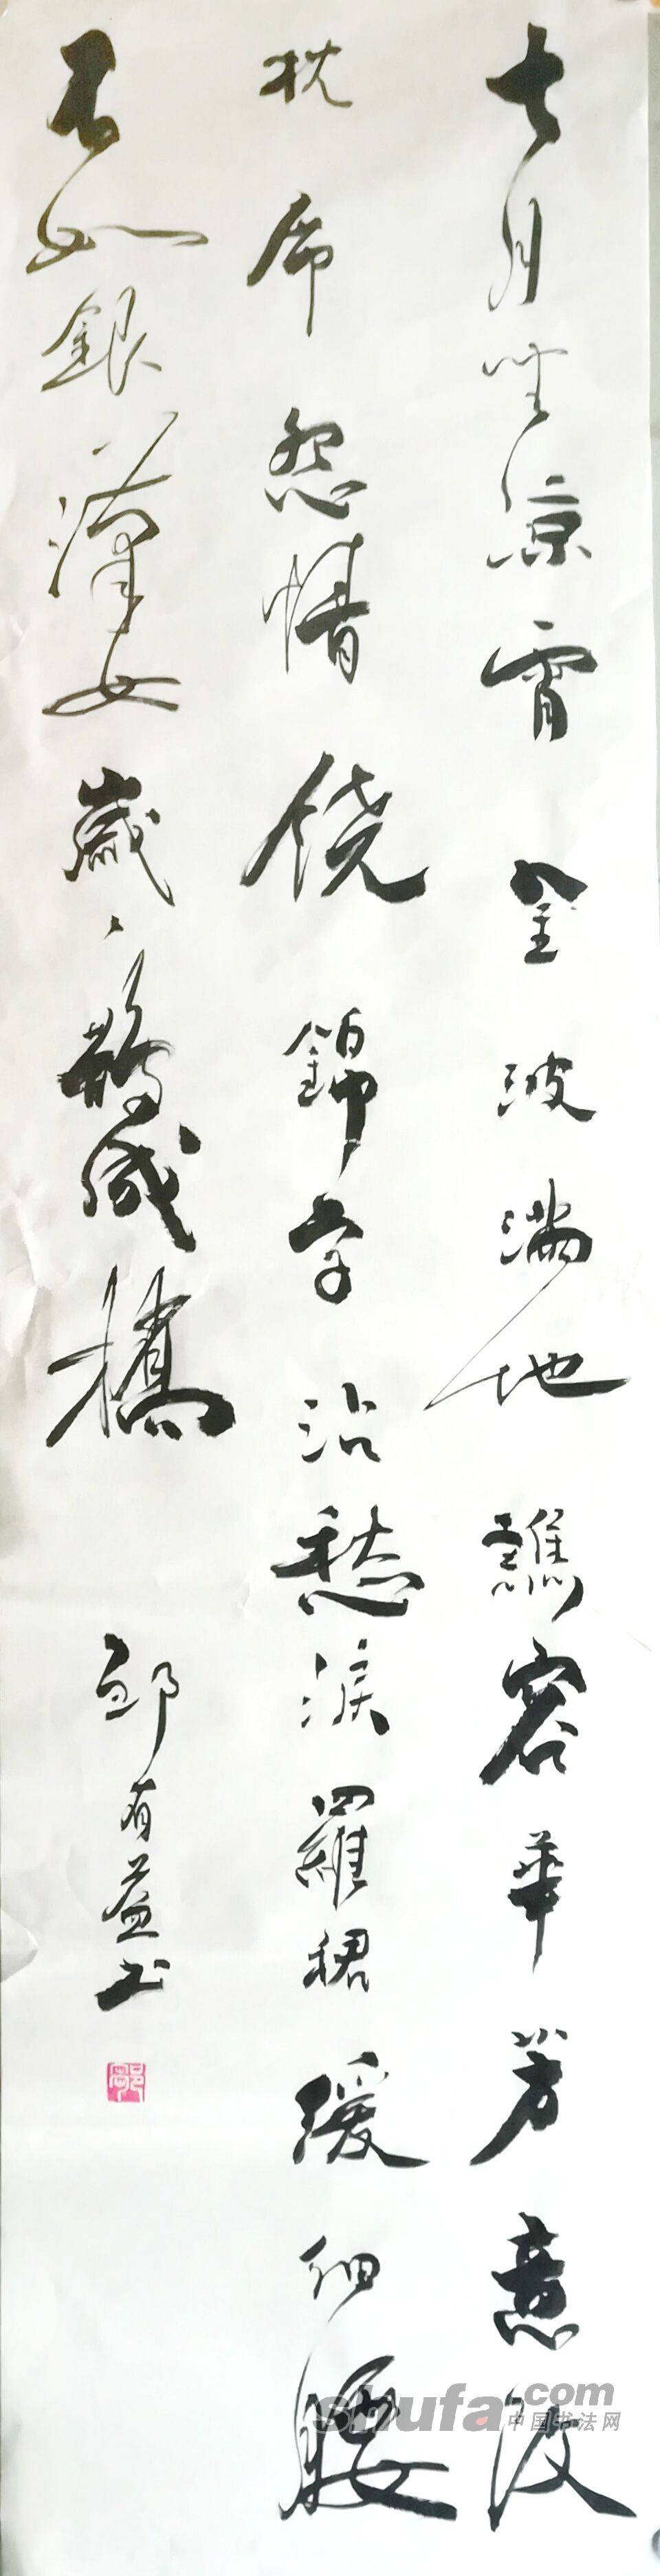 七月坐涼宵金波滿地譙容華芳意改
枕席怨情饶錦字沾愁淚羅裙緩細腰
不如銀漢女歲々鵲成橋
邹有益书
shufa.com
中国书法网